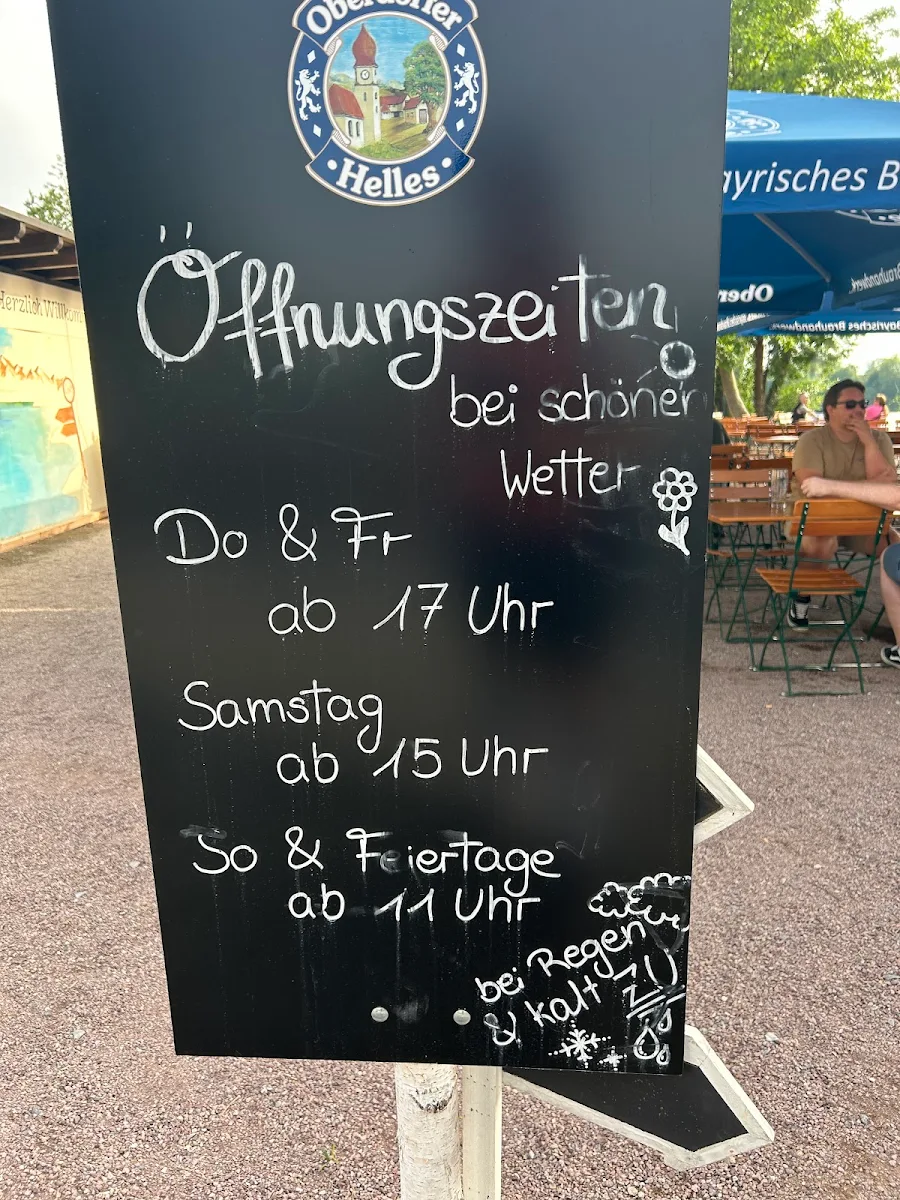 Oberdorfer
Helles
ayrisches B
Herzlich Willkom
Öffnungszeiten
bei schöner
Wetter
Do & Fr
ab 17 Uhr
Samstag
ab 15 Uhr
So & Feiertage
ab 11 Uhr
bei Regen
& kalt ZU